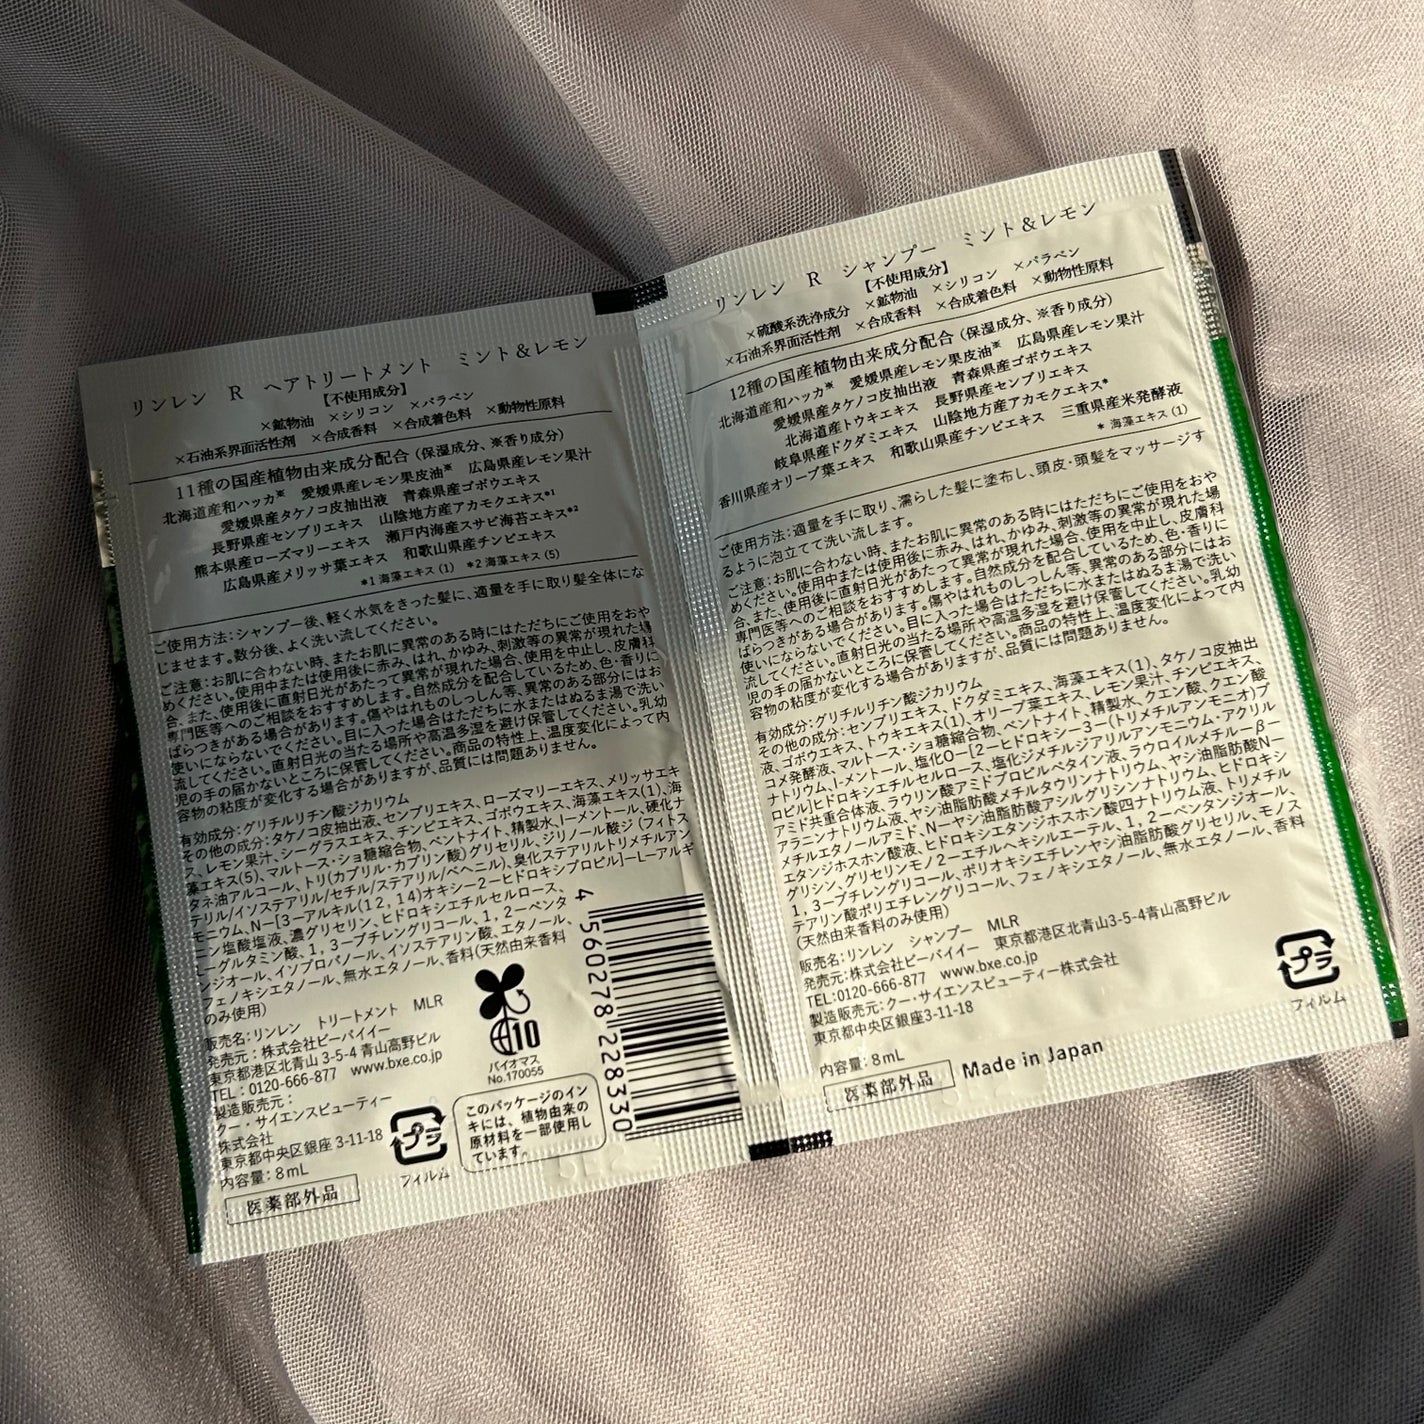 リンレン R ヘアトリートメント ミント&レモン
【不使用成分】
×鉱物油 ×シリコン ×パラベン
×石油系界面活性剤 ×合成香料 ×合成着色料 ×動物性原料
11種の国産植物由来成分配合（保湿成分、※香り成分）
北海道産和ハッカ※ 愛媛県産レモン果皮油※ 広島県産レモン果汁
愛媛県産タケノコ皮抽出液 青森県産ゴボウエキス
長野県産センブリエキス 山陰地方産アカモクエキス*1
熊本県産ローズマリーエキス 瀬戸内海産スサビ海苔エキス*2
広島県産メリッサ葉エキス 和歌山県産チンピエキス
*1 海藻エキス (1) *2 海藻エキス (5)
ご使用方法：シャンプー後、軽く水気をきった髪に、適量を手に取り髪全体にな
じませます。数分後、よく洗い流してください。
ご注意：お肌に合わない時、またお肌に異常のある時にはただちにご使用をおや
めください。使用中または使用後に赤み、はれ、かゆみ、刺激等の異常が現れた場
合、また、使用後に直射日光があたって異常が現れた場合、使用を中止し、皮膚科
専門医等へのご相談をおすすめします。自然成分を配合しているため、色・香りに
ばらつきがある場合があります。傷やはれものしっしん等、異常のある部分にはお
使いにならないでください。目に入った場合はただちに水またはぬるま湯で洗い
流してください。直射日光の当たる場所や高温多湿を避け保管してください。乳幼
児の手の届かないところに保管してください。商品の特性上、温度変化によって内
容物の粘度が変化する場合がありますが、品質には問題ありません。
有効成分：グリチルリチン酸ジカリウム
その他の成分：タケノコ皮抽出液、センブリエキス、ローズマリーエキス、メリッサエキ
ス、レモン果汁、シーグラスエキス、チンピエキス、ゴボウエキス、海藻エキス(1)、海
藻エキス(5)、マルトース・ショ糖縮合物、ベントナイト、精製水、l-メントール、硬化ナ
タネ油アルコール、トリ(カプリル・カプリン酸)グリセリル、ジリノール酸ジ(フィトス
テリル/イソステアリル/セチル/ステアリル/ベヘニル)、臭化ステアリルトリメチルアン
モニウム、N-[3-アルキル(12,14)オキシ-2-ヒドロキシプロピル]-L-アルギ
ニン塩酸塩液、濃グリセリン、ヒドロキシエチルセルロース、
L-グルタミン酸、1,3-ブチレングリコール、1,2-ペンタ
ンジオール、イソプロパノール、イソステアリン酸、エタノール、
フェノキシエタノール、無水エタノール、香料(天然由来香料
のみ使用)
販売名：リンレン トリートメント MLR
発売元：株式会社ビーバイイー
東京都港区北青山 3-5-4 青山高野ビル
TEL：0120-666-877 www.bxe.co.jp
製造販売元：
クー・サイエンスビューティー
株式会社
東京都中央区銀座 3-11-18
内容量：8mL
医薬部外品
10
バイオマス
No.170055
プラ
フィルム
このパッケージのイン
キには、植物由来の
原材料を一部使用し
ています。
4 560278 228330
リンレン R シャンプー ミント&レモン
【不使用成分】
×硫酸系洗浄成分 ×鉱物油 ×シリコン ×パラベン
×石油系界面活性剤 ×合成香料 ×合成着色料 ×動物性原料
12種の国産植物由来成分配合（保湿成分、※香り成分）
北海道産和ハッカ※ 愛媛県産レモン果皮油※ 広島県産レモン果汁
愛媛県産タケノコ皮抽出液 青森県産ゴボウエキス
北海道産トウキエキス 長野県産センブリエキス
岐阜県産ドクダミエキス 山陰地方産アカモクエキス*
香川県産オリーブ葉エキス 和歌山県産チンピエキス 三重県産米発酵液
* 海藻エキス (1)
ご使用方法：適量を手に取り、濡らした髪に塗布し、頭皮・頭髪をマッサージす
るように泡立てて洗い流します。
ご注意：お肌に合わない時、またお肌に異常のある時にはただちにご使用をおや
めください。使用中または使用後に赤み、はれ、かゆみ、刺激等の異常が現れた場
合、また、使用後に直射日光があたって異常が現れた場合、使用を中止し、皮膚科
専門医等へのご相談をおすすめします。自然成分を配合しているため、色・香りに
ばらつきがある場合があります。傷やはれものしっしん等、異常のある部分にはお
使いにならないでください。目に入った場合はただちに水またはぬるま湯で洗い
流してください。直射日光の当たる場所や高温多湿を避け保管してください。乳幼
児の手の届かないところに保管してください。商品の特性上、温度変化によって内
容物の粘度が変化する場合がありますが、品質には問題ありません。
有効成分：グリチルリチン酸ジカリウム
その他の成分：センブリエキス、ドクダミエキス、海藻エキス(1)、タケノコ皮抽出
液、ゴボウエキス、トウキエキス(1)、オリーブ葉エキス、レモン果汁、チンピエキス、
コメ発酵液、マルトース・ショ糖縮合物、ベントナイト、精製水、クエン酸、クエン酸
ナトリウム、l-メントール、塩化O-[2-ヒドロキシ-3-(トリメチルアンモニオ)プ
ロピル]ヒドロキシエチルセルロース、塩化ジメチルジアリルアンモニウム・アクリル
アミド共重合体液、ラウリン酸アミドプロピルベタイン液、ラウロイルメチル-β-
アラニンナトリウム液、ヤシ油脂肪酸メチルタウリンナトリウム、ヤシ油脂肪酸N-
メチルエタノールアミド、N-ヤシ油脂肪酸アシルグリシンナトリウム、ヒドロキシ
エタンジホスホン酸液、ヒドロキシエタンジホスホン酸四ナトリウム液、トリメチル
グリシン、グリセリンモノ2-エチルヘキシルエーテル、1,2-ペンタンジオール、
1,3-ブチレングリコール、ポリオキシエチレンヤシ油脂肪酸グリセリル、モノス
テアリン酸ポリエチレングリコール、フェノキシエタノール、無水エタノール、香料
(天然由来香料のみ使用)
販売名：リンレン シャンプー MLR
発売元：株式会社ビーバイイー 東京都港区北青山3-5-4青山高野ビル
TEL:0120-666-877 www.bxe.co.jp
製造販売元：クー・サイエンスビューティー株式会社
東京都中央区銀座3-11-18
内容量：8mL
医薬部外品 Made in Japan
プラ
フィルム